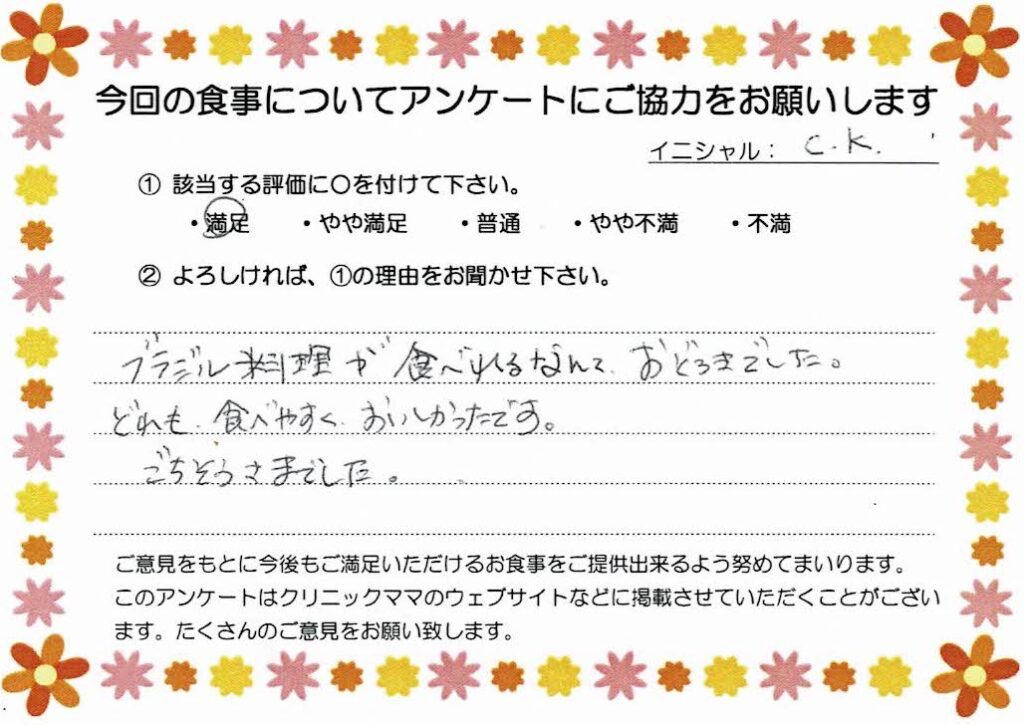 今回の食事についてアンケートにご協力をお願いします
イニシャル： C.K.
① 該当する評価に〇を付けて下さい。
・満足 ・やや満足 ・普通 ・やや不満 ・不満
② よろしければ、①の理由をお聞かせ下さい。
ブラジル料理が食べれるなんて、おどろきでした。
どれも、食べやすく、おいしかったです。
ごちそうさまでした。
ご意見をもとに今後もご満足いただけるお食事をご提供出来るよう努めてまいります。
このアンケートはクリニックママのウェブサイトなどに掲載させていただくことがござい
ます。たくさんのご意見をお願い致します。